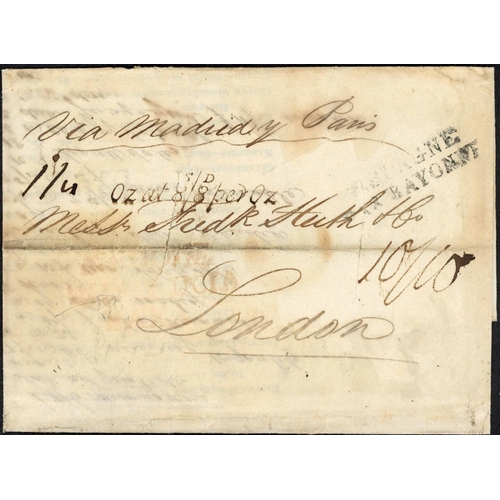 Via Madrid y Paris
PAGNE
BAYONNE
1/11
S/D
Oz at 8/8 per Oz
Messrs Fredk Huth & Co
10/10
London